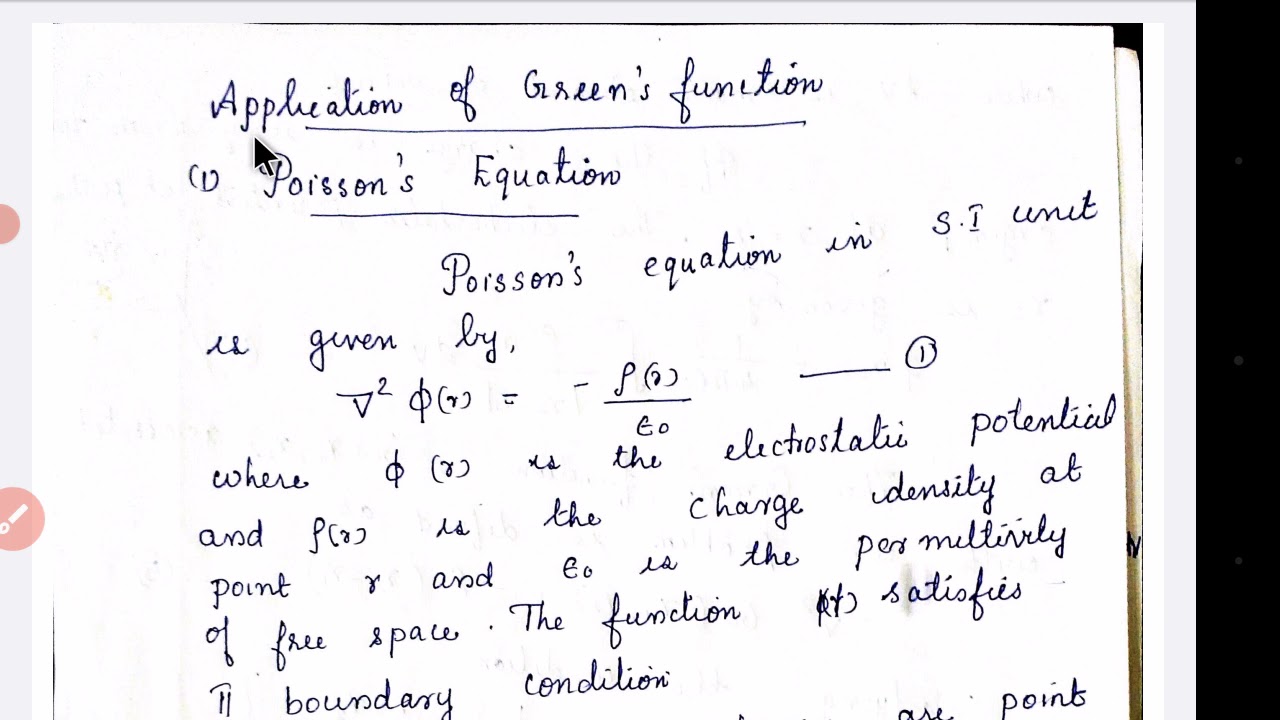 Application of Green's function
(1) Poisson's Equation
Poisson's equation in S.I unit
is given by,
∇² ϕ(r) = - ρ(r)/ε0 —— ①
where ϕ (r) is the electrostatic potential
and ρ(r) is the charge density at
point r and ε0 is the permittivity
of free space. The function satisfies
boundary condition
are point